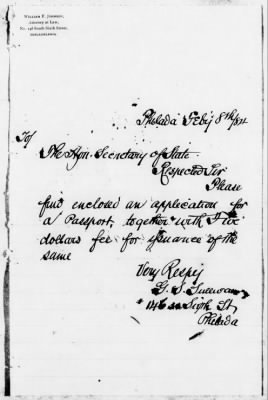 William F. Johnson,
Attorney at Law,
No. 146 South Sixth Street,
PHILADELPHIA.
Philada Feby 8th/84
To/
The Hon. Secretary of State
Respected Sir
Please
find enclosed an application for
a Passport, together with Five
dollars fee for issuance of the
same
Very Respy
G. S.
146 So Sixth St
Philada